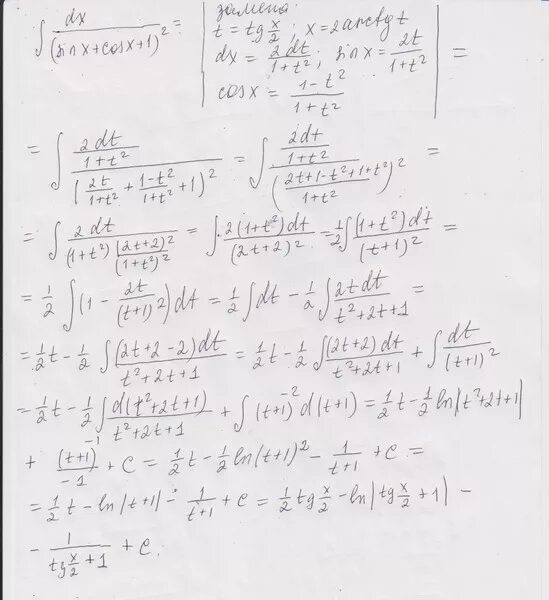 ∫ dx/(sin x + cos x + 1)² = | замена: t = tg x/2 ; x = 2arctg t
dx = 2dt/(1+t²) ; sin x = 2t/(1+t²)
cos x = (1-t²)/(1+t²) | =
= ∫ (2dt/(1+t²))/(2t/(1+t²) + (1-t²)/(1+t²) + 1)² = ∫ (2dt/(1+t²))/((2t+1-t²+1+t²)/(1+t²))² =
= ∫ 2dt/((1+t²) (2t+2)²/(1+t²)²) = ∫ 2(1+t²)dt/(2t+2)² = 1/2 ∫ (1+t²)dt/(t+1)² =
= 1/2 ∫ (1 - 2t/(t+1)²)dt = 1/2 ∫ dt - 1/2 ∫ 2t dt/(t²+2t+1) =
= 1/2 t - 1/2 ∫ (2t+2-2)dt/(t²+2t+1) = 1/2 t - 1/2 ∫ (2t+2)dt/(t²+2t+1) + ∫ dt/(t+1)²
= 1/2 t - 1/2 ∫ d(t²+2t+1)/(t²+2t+1) + ∫ (t+1)⁻² d(t+1) = 1/2 t - 1/2 ln|t²+2t+1|
+ (t+1)⁻¹/-1 + c = 1/2 t - 1/2 ln(t+1)² - 1/(t+1) + c =
= 1/2 t - ln|t+1| - 1/(t+1) + c = 1/2 tg x/2 - ln|tg x/2 + 1| -
- 1/(tg x/2 + 1) + c.